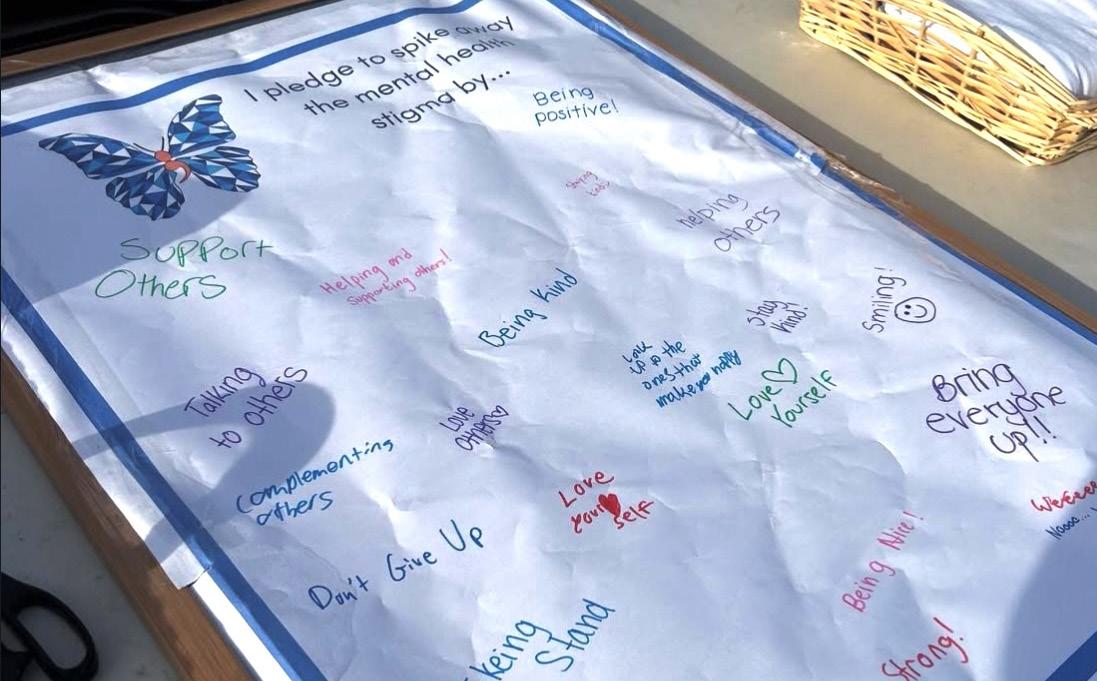 I pledge to spike away
the mental health
stigma by...
Being
positive!
Staying
kind
helping
others
Support
Others
Helping and
Supporting others!
Being kind
Stay
kind!
Smiling!
Talking
to others
Love
others
up to the
ones that
make you happy
Love
Yourself
Bring
everyone
up!!
Complementing
others
Love
your
self
Don't Give Up
Being Nice!
Stand
Strong!